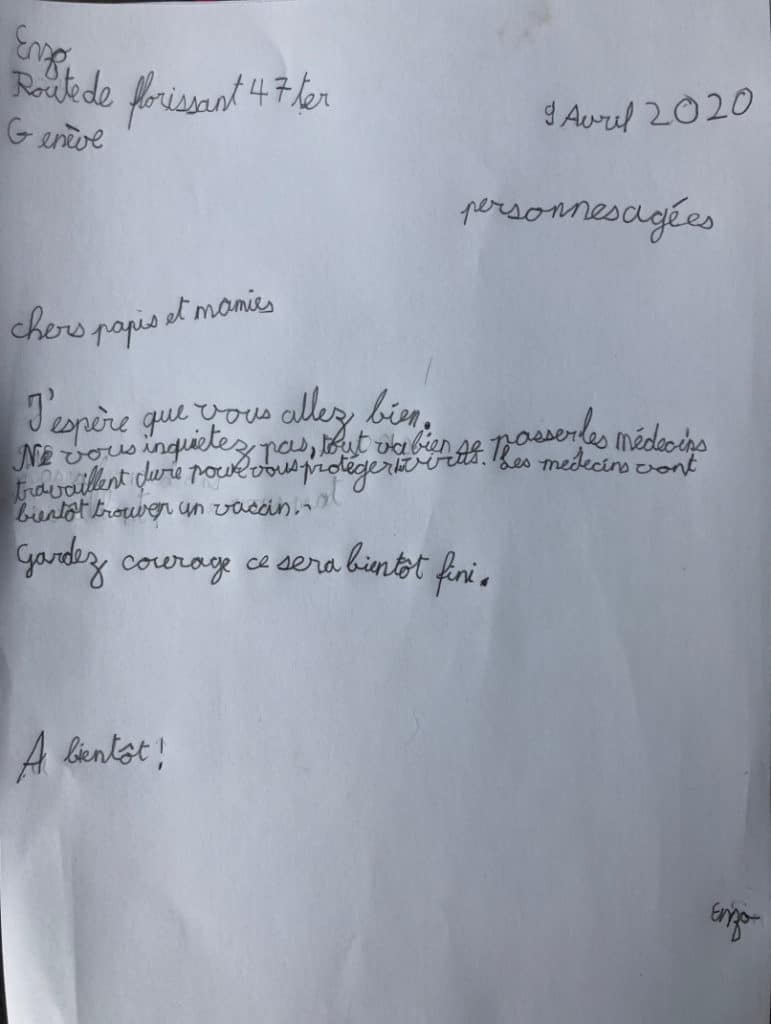 Enzo
Route de florissant 47 ter
Genève
9 Avril 2020
personnes agées
chers papis et mamies
J'espère que vous allez bien.
Ne vous inquietez pas, tout va bien se passer les médecins
travaillent dure pour vous protéger virus. Les medecins vont
bientôt trouver un vaccin.
Gardez courage ce sera bientôt fini.
A bientôt!
Enzo